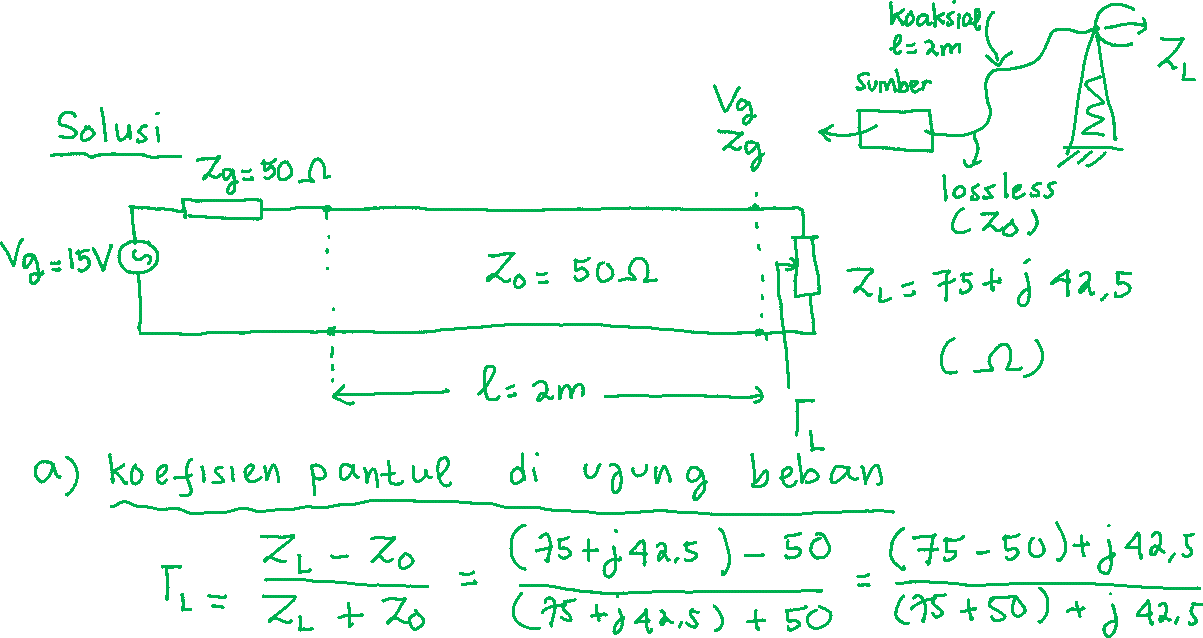 koaksial
l = 2m
Z_L
Sumber
Vg
Zg
Solusi
Zg = 50 Ω
lossless
(Zo)
Vg = 15V
S
Zo = 50 Ω
Z_L = 75 + j 42,5
(Ω)
l = 2m
Γ_L
a) koefisien pantul di ujung beban
Γ_L = (Z_L - Zo) / (Z_L + Zo) = ((75 + j 42,5) - 50) / ((75 + j 42,5) + 50) = ((75 - 50) + j 42,5) / ((75 + 50) + j 42,5)